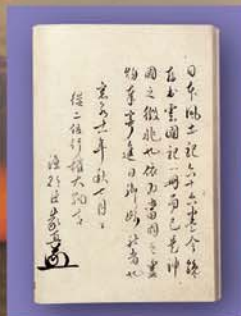 日本風土記六十六巻今纔
存出雲国記一冊而已是神
国之徴兆也依為当国之霊
物奉寄進日御碕社者也
寛永十一年秋七月日
従二位行権大納言
源朝臣義直